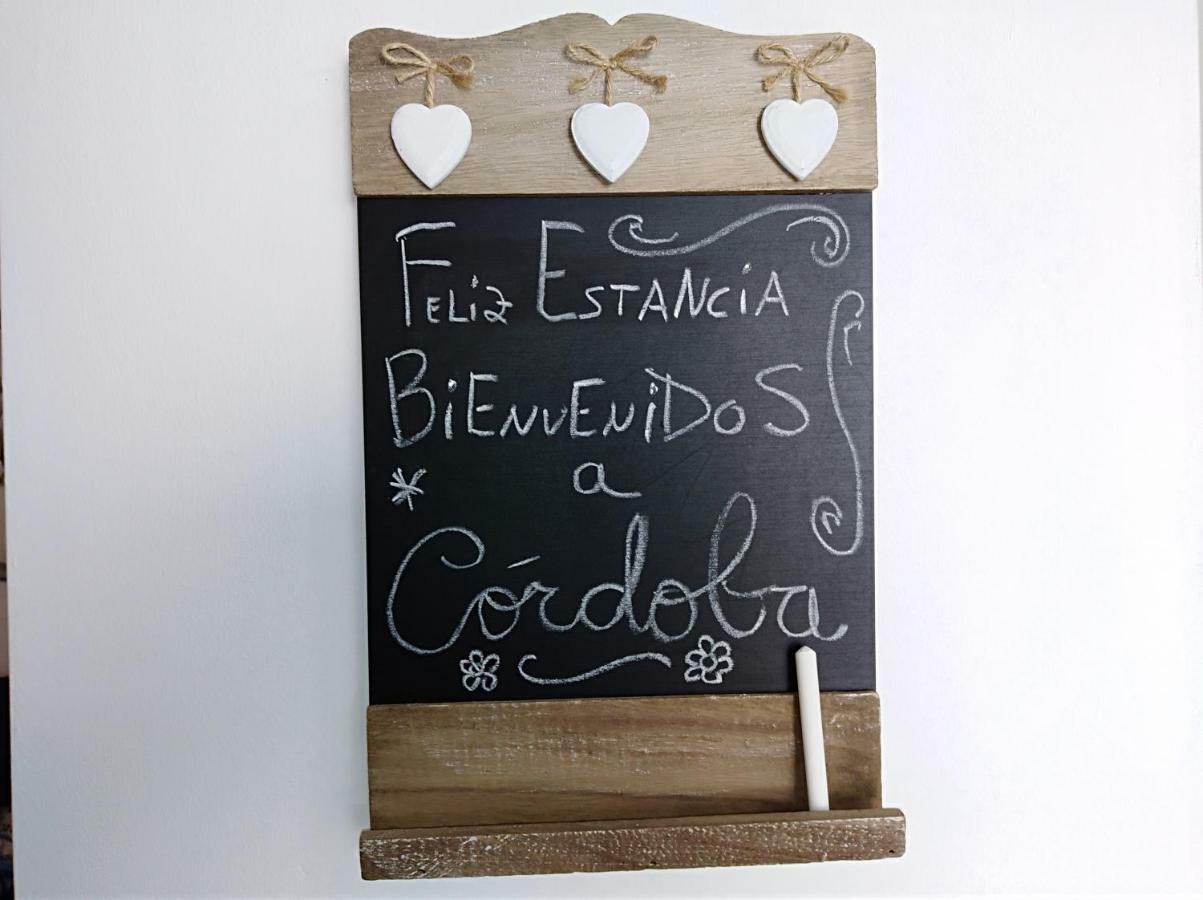 Feliz Estancia
Bienvenidos
a
Córdoba